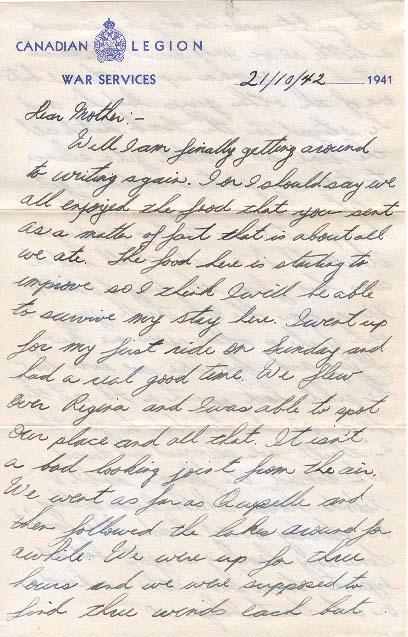 CANADIAN LEGION
WAR SERVICES
21/10/42 1941
Dear Mother:-
Well I am finally getting around
to writing again. I or I should say we
all enjoyed the food that you sent
as a matter of fact that is about all
we ate. The food here is starting to
improve so I think I will be able
to survive my stay here. I went up
for my first ride on Sunday and
had a real good time. We flew
over Regina and I was able to spot
our place and all that. It isn't
a bad looking joint from the air.
We went as far as Quapelle and
then followed the lakes around for
awhile. We were up for three
hours and we were supposed to
find three winds each but